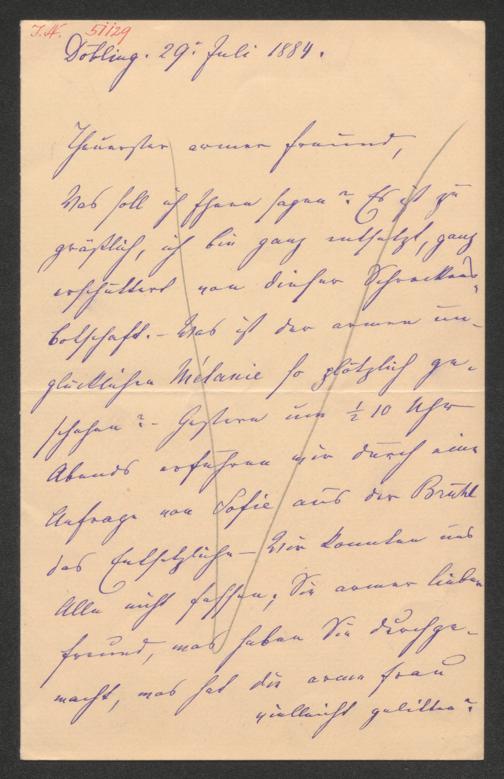 J.N. 51129
Döbling. 29t Juli 1884.
Theuerster armer Freund,
Was soll ich Ihnen sagen? Es ist zu
gräßlich, ich bin ganz entsetzt, ganz
erschüttert von dieser Schreckens-
botschaft. – Was ist der armen un-
glücklichen Mélanie so plötzlich ge-
schehen? – Gestern um ½ 10 Uhr
Abends erfuhren wir durch eine
Anfrage von Sofie aus der Brühl
das Entsetzliche – Wir konnten uns
Alle nicht fassen; Sie armer lieber
Freund, was haben Sie durchge-
macht, was hat die arme Frau
vielleicht gelitten?